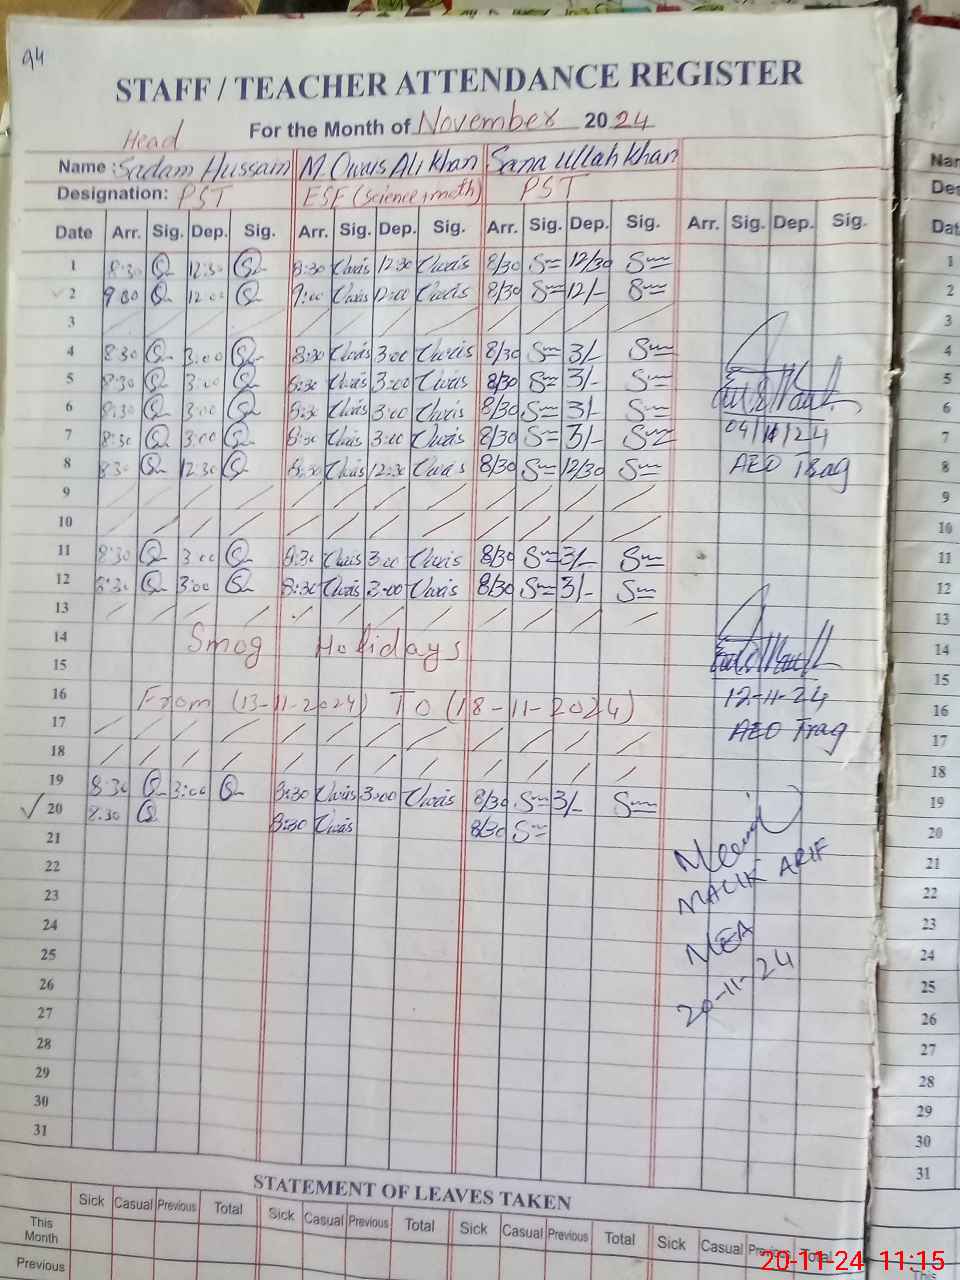 94
STAFF / TEACHER ATTENDANCE REGISTER
Head For the Month of November 20 24
Name : Sadam Hussain M. Owais Ali Khan Sana Ullah Khan
Designation: PST ESE (science, math) PST
Date Arr. Sig. Dep. Sig. Arr. Sig. Dep. Sig. Arr. Sig. Dep. Sig. Arr. Sig. Dep. Sig.
1 8:30 12:30 8:30 Owais 12:30 Owais 8/30 12/30
2 9:00 12:00 9:00 Owais 12:00 Owais 8/30 12/-
3
4 8:30 3:00 8:30 Owais 3:00 Owais 8/30 3/-
5 8:30 3:00 8:30 Owais 3:00 Owais 8/30 3/-
6 8:30 3:00 8:30 Owais 3:00 Owais 8/30 3/-
7 8:30 3:00 8:30 Owais 3:00 Owais 8/30 3/- 04/11/24
8 8:30 12:30 8:30 Owais 12:30 Owais 8/30 12/30 AEO
9
10
11 8:30 3:00 8:30 Owais 3:00 Owais 8/30 3/-
12 8:30 3:00 8:30 Owais 3:00 Owais 8/30 3/-
13
14 Smog Holidays
15
16 From (13-11-2024) TO (18-11-2024) 12-11-24
17 AEO
18
19 8:30 3:00 8:30 Owais 3:00 Owais 8/30 3/-
20 8:30 8:30 Owais 8/30
21
22 MALIK ARIF
23
24 MEA
25
26 20-11-24
27
28
29
30
31
STATEMENT OF LEAVES TAKEN
Sick Casual Previous Total Sick Casual Previous Total Sick Casual Previous Total Sick Casual Previous Total
This Month
Previous
Nar
Des
Dat
1
2
3
4
5
6
7
8
9
10
11
12
13
14
15
16
17
18
19
20
21
22
23
24
25
26
27
28
29
30
31
This
20-11-24 11:15